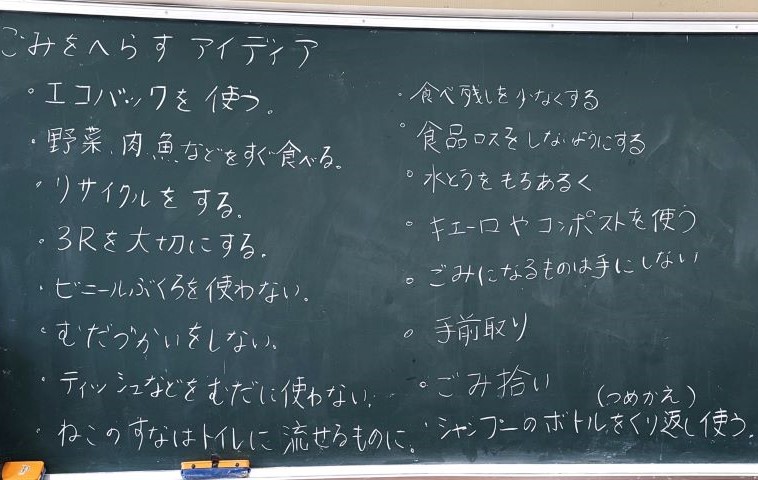 ごみをへらす アイディア
・エコバックを使う。
・野菜、肉、魚などをすぐ食べる。
・リサイクルをする。
・3Rを大切にする。
・ビニールぶくろを使わない。
・むだづかいをしない。
・ティッシュなどをむだに使わない。
・ねこのすなはトイレに流せるものに。
・食べ残しを少なくする
・食品ロスをしないようにする
・水とうをもちあるく
・キエーロやコンポストを使う
・ごみになるものは手にしない
・手前取り
・ごみ拾い
(つめかえ)
・シャンプーのボトルをくり返し使う。